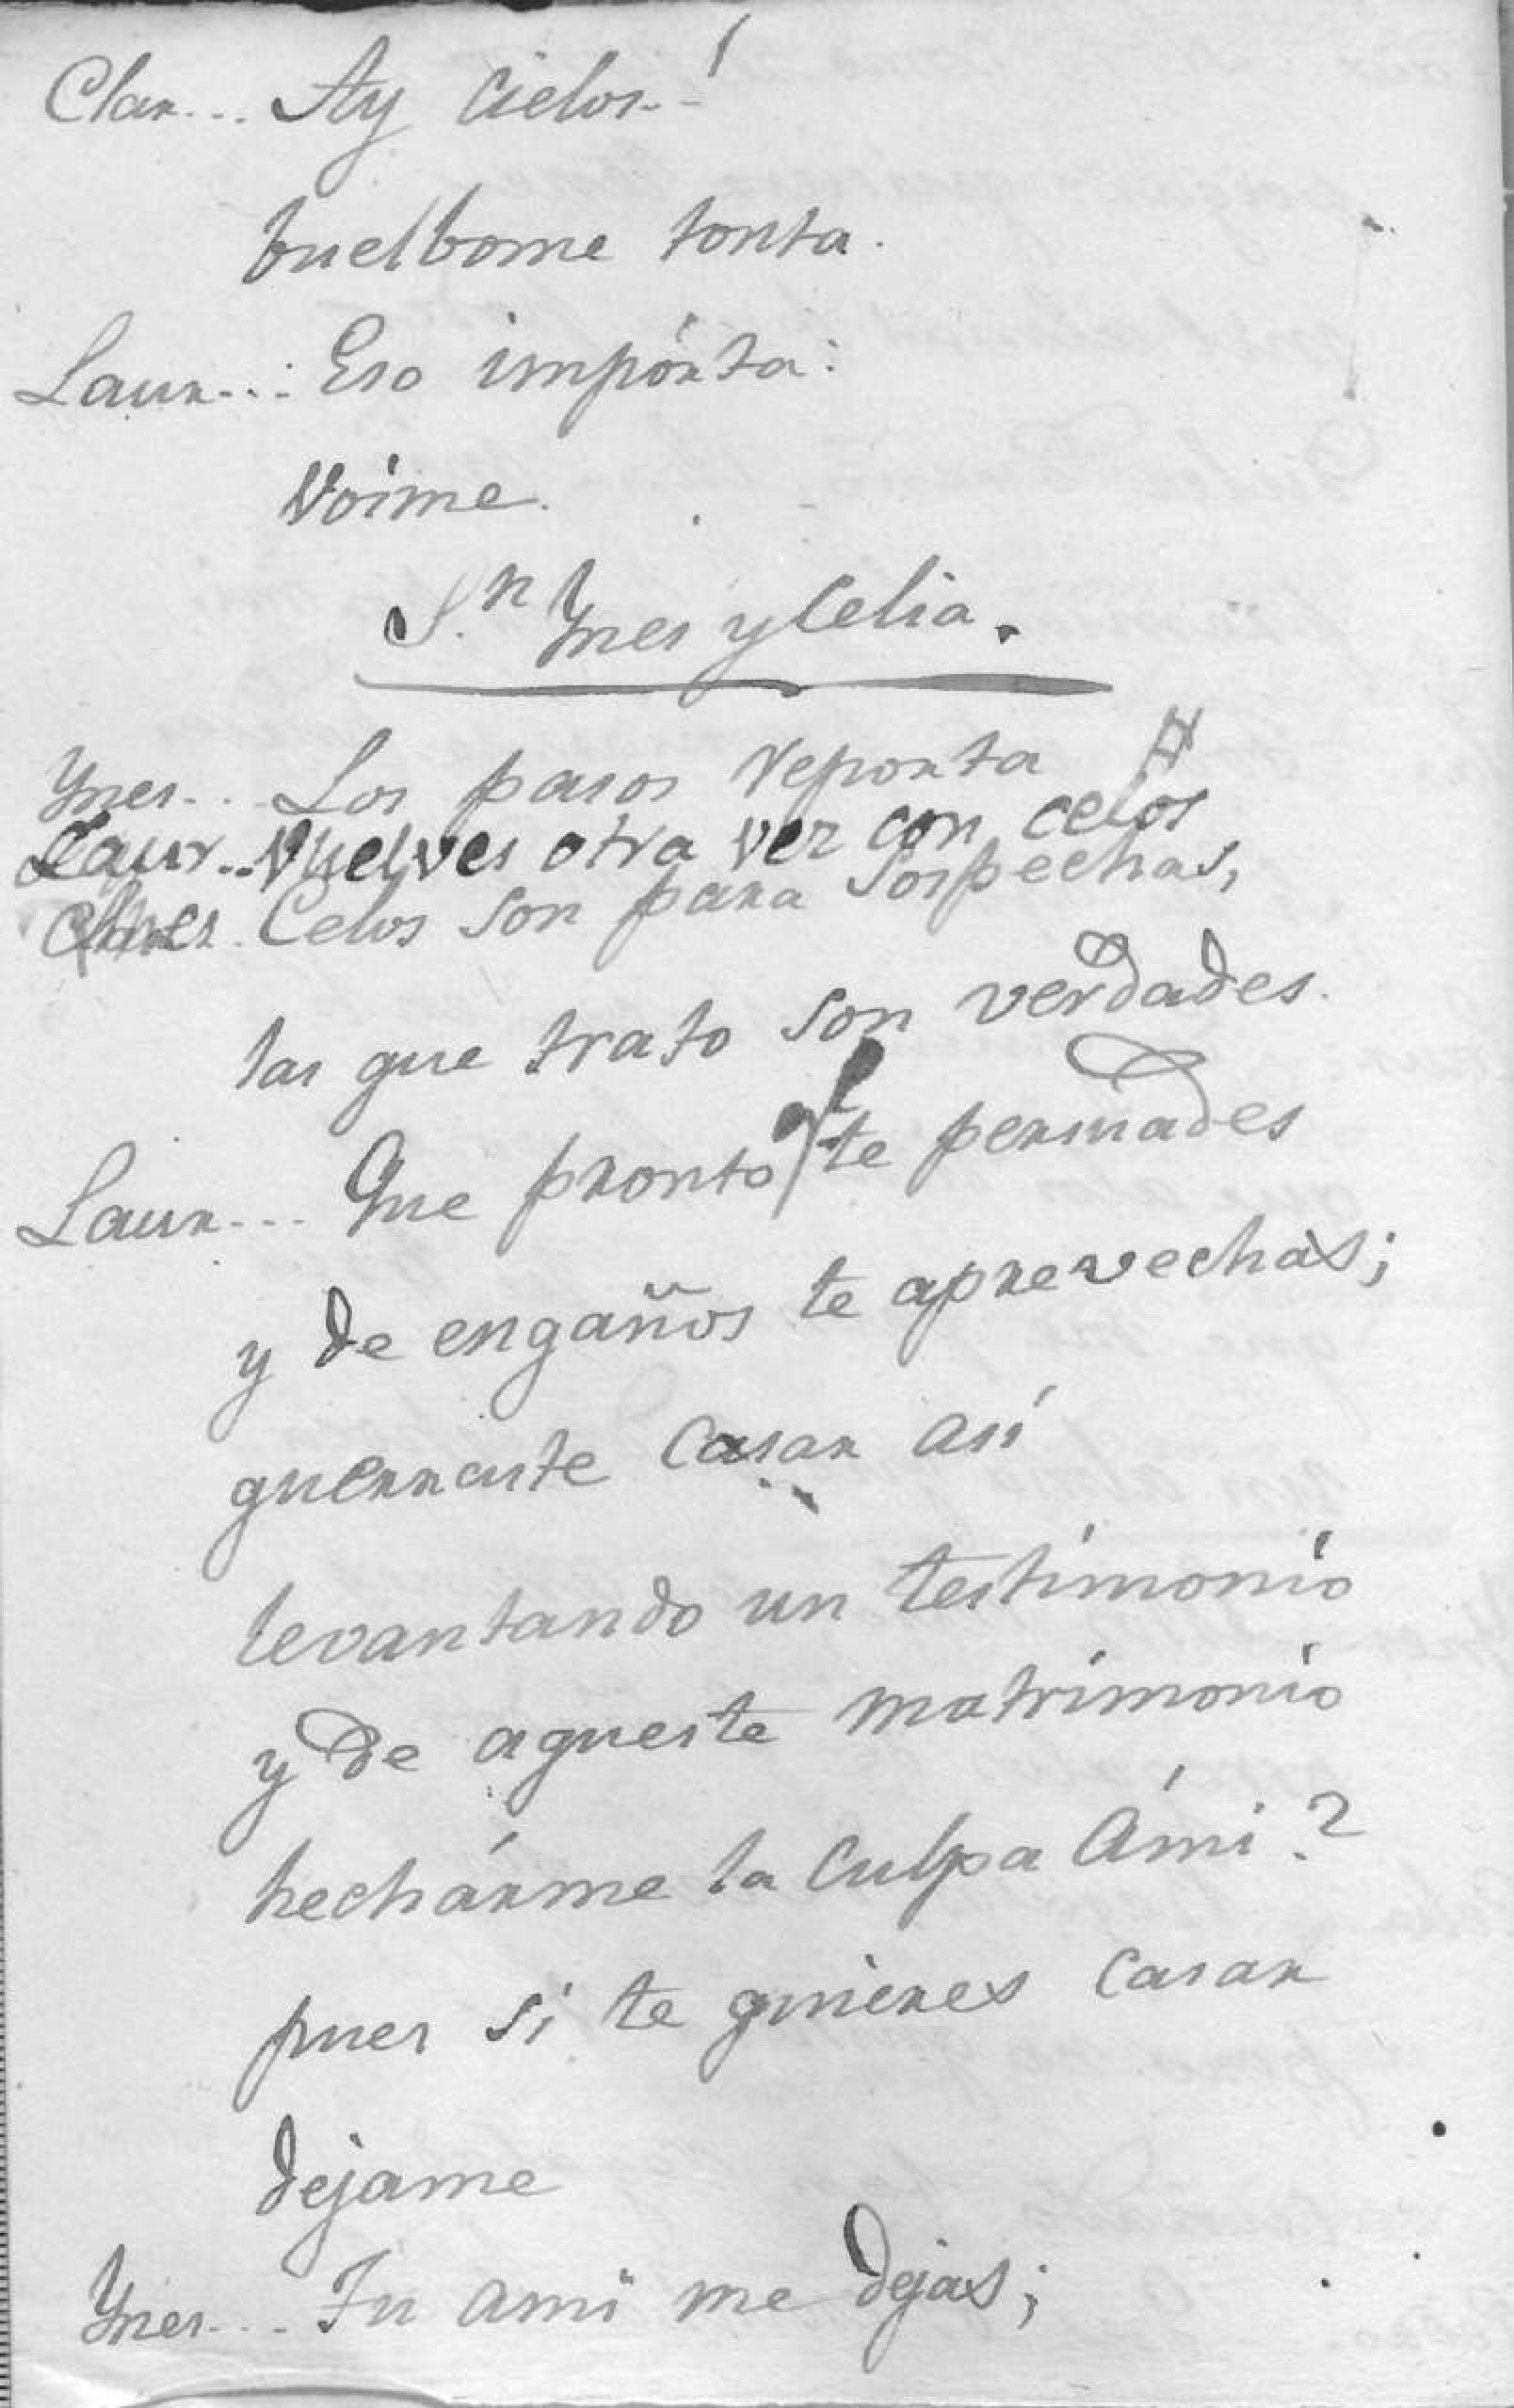 Clar... Ay Cielos--!
buelbome tonta.
Laur... Eso impórta:
Voime.
S.n Ynes y Celia.
Ynes... Los pasos reporta #
Laur.. Vuelves otra vez con celos
Celos son para Sospechas,
las que trato son verdades.
Laur... Que pronto te persuades
y de engaños te aprevechas;
querraste Casar así
levantando un testimonio
y de aqueste matrimonio
hechárme la Culpa Ámi?
pues si te quieres casar
dejame
Ynes... Tu ami me dejas;